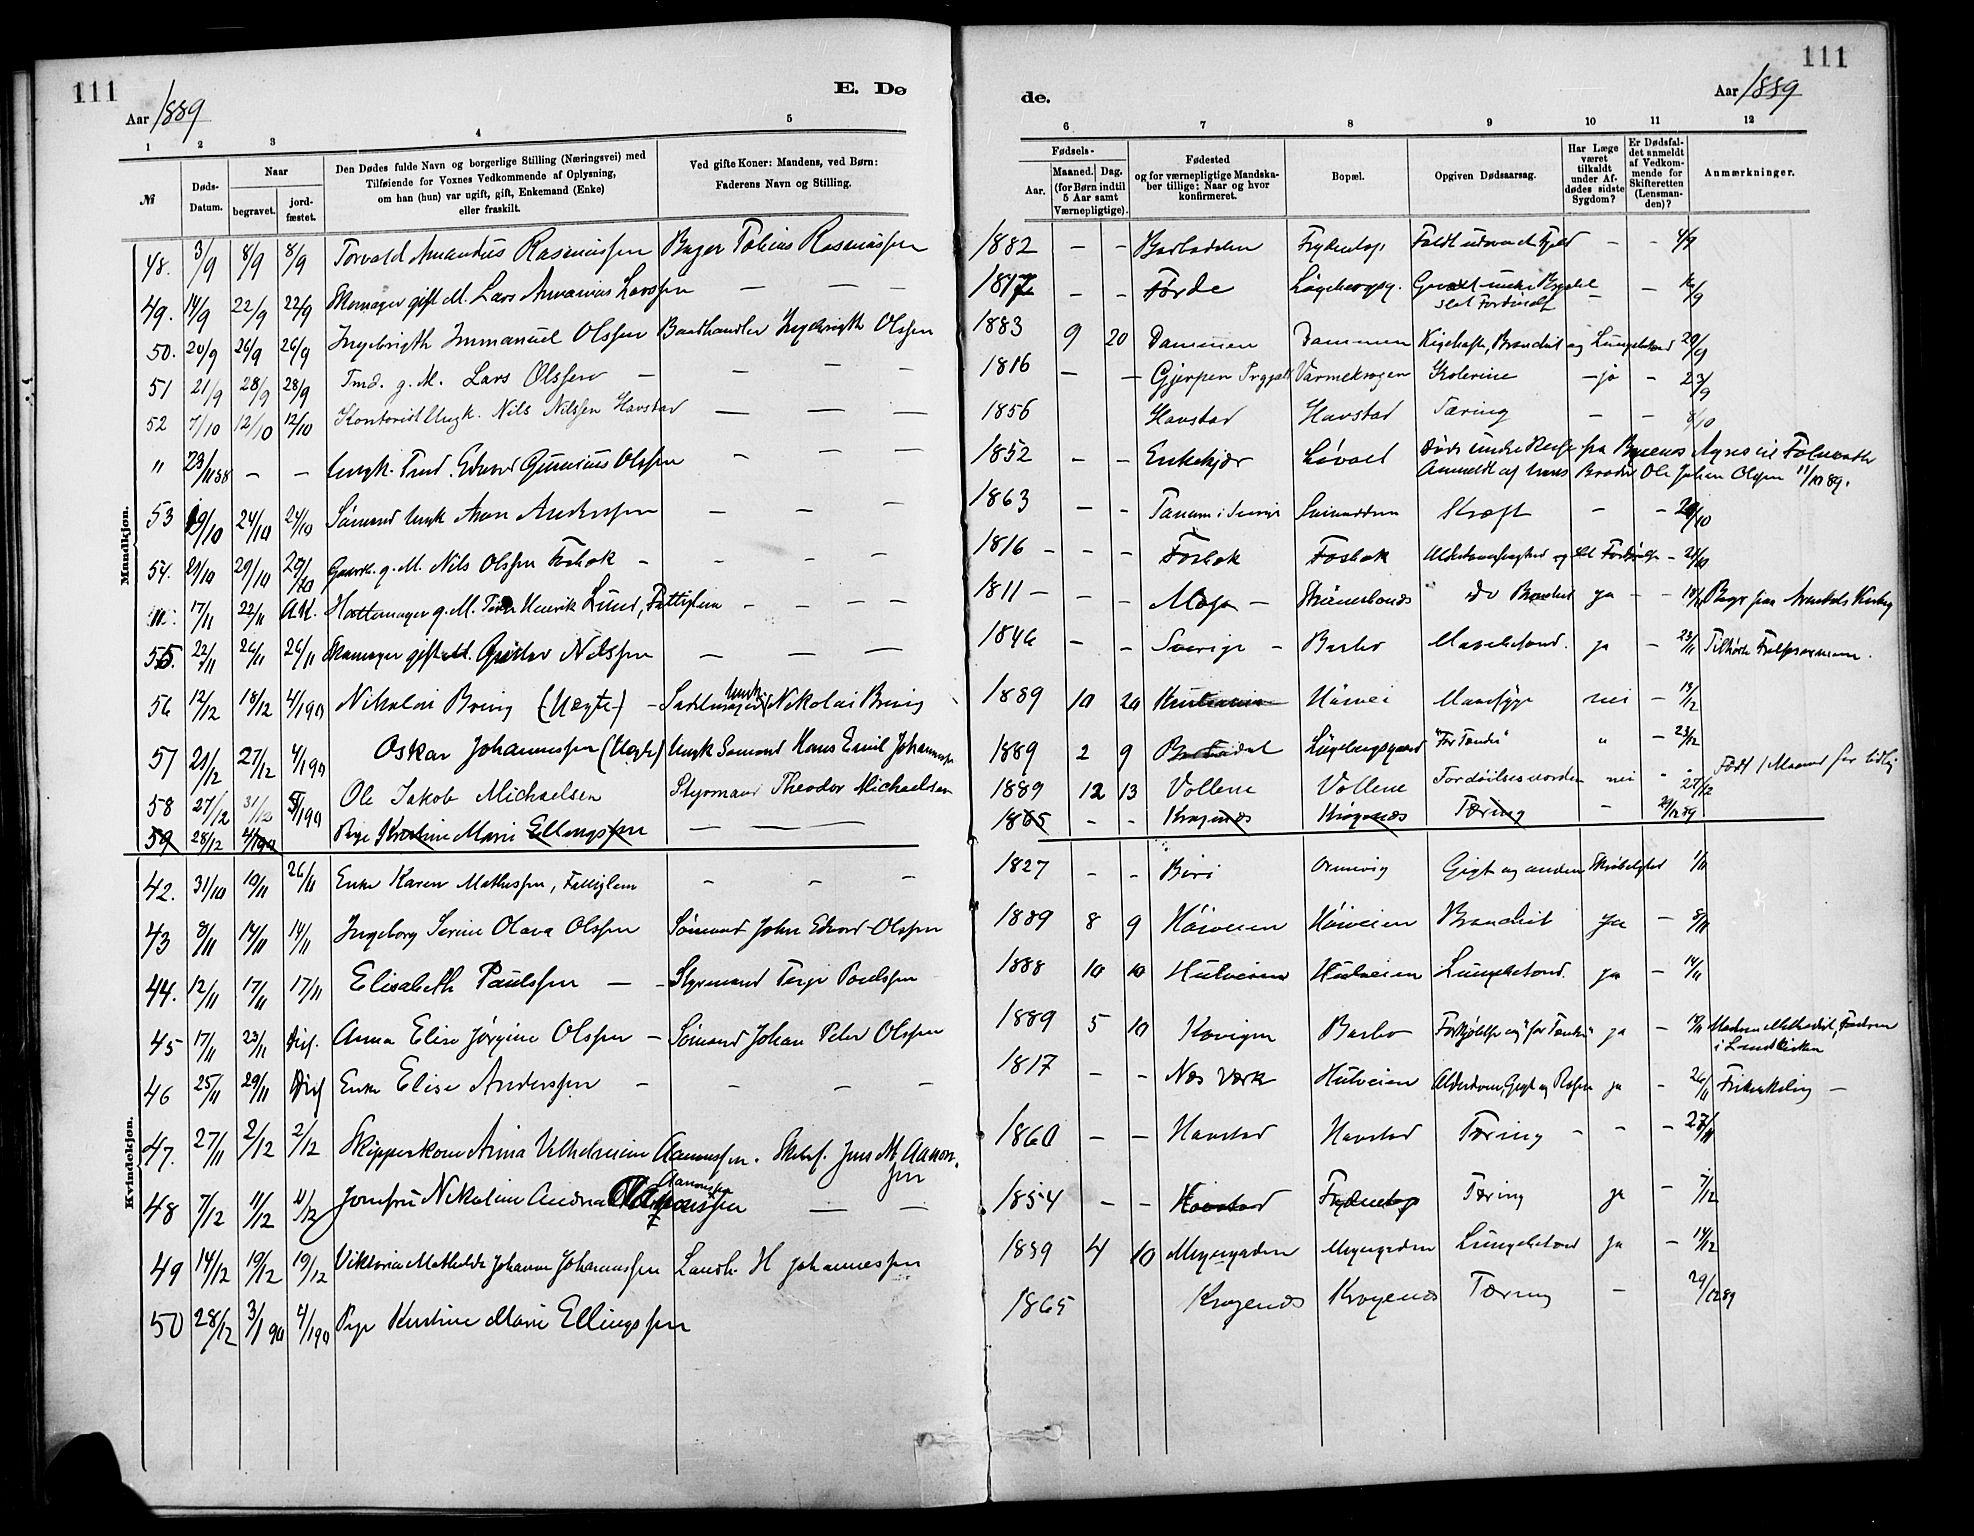 111
111
Aar 1889
E. Dø
de.
Aar 1889
1 2 3 4 5
6 7 8 9 10 11 12
№
Døds-
Datum.
Naar
begravet.
jord-
fæstet.
Den Dødes fulde Navn og borgerlige Stilling (Næringsvei) med
Tilføiende for Voxnes Vedkommende af Oplysning,
om han (hun) var ugift, gift, Enkemand (Enke)
eller fraskilt.
Ved gifte Koner: Mandens, ved Børn:
Faderens Navn og Stilling.
Fødsels-
Aar.
Maaned. Dag.
(for Børn indtil
5 Aar samt
Værnepligtige).
Fødested
og for værnepligtige Mandska-
ber tillige: Naar og hvor
konfirmeret.
Bopæl.
Opgiven Dødsaarsag.
Har Læge
været
tilkaldt
under Af-
dødes sidste
Sygdom?
Er Dødsfal-
det anmeldt
af Vedkom-
mende for
Skifteretten
(Lensman-
den)?
Anmærkninger.
Mandkjøn.
48. 3/9 8/9 8/9 Torvald Amandus Rasmussen Bager Tobias Rasmussen 1882 – – Barbudalen – – 4/9
49. 14/9 22/9 22/9 Skomager gift M. Lars Ananias Larssen — — — 1817 – – Førde – – 16/9
50. 20/9 26/9 26/9 Ingebrigth Immanuel Olssen Baadhandler Ingebrigth Olssen 1883 9 20 Dammen Dammen Kighoste, Brandvit og Lungebetænd 20/9
51 21/9 28/9 28/9 Tmd. g. M. Lars Olssen — — — — 1816 – – Gjerpen Varmekrogen Kolerine – ja – 23/9
52 7/10 12/10 12/10 Kontorist Ungk. Nils Nilssen Havstad — — — 1856 Havstad Havstad Tæring – – 8/10
" 23/11 88 – – Ungk. Tmd. Edvard Gunnius Olssen – – – 1852 – – Enkekjær Løvold Døde under Reise fra Buenos Ayres til Falmouth
Anmeldt af hans Broder Ole Johan Olssen 11/10 89.
53 19/10 24/10 24/10 Sømand Ungk Aron Anderssen – – – 1863 – – Tanum i Sverige Kræft – – 20/10
54. 21/10 29/10 29/10 Gaardbr. g. M. Nils Olssen Fosbæk – – – – 1816 – – – Fosbæk Fosbæk Alderdomssvaghed og – 21/10
17/11 22/11 A.K. Hattemager g. M. Henrik Lund, Fattiglem – – – – 1811 – – – Do Brandvit ja – 18/11
55. 22/11 26/11 26/11 Skomager gift M. Gustav Nilssen — — — 1846 – – Sverige – Barbo Mavebetænd. ja – 23/11 Tilhørte Frelsesarmeen.
56 12/12 18/12 4/1 90 Nikolai Bring (Uægte) – Sadelmager Ungk. Nikolai Bring 1889 10 20 Kristiania Høivei Mavesyge nei – 13/12
57 21/12 27/12 4/1 90 Oskar Johannessen (Uægte) Ungk Sømand Hans Emil Johannessen 1889 2 9 "For Tænder" " – 23/12
58 27/12 31/12 5/1 90 Ole Jakob Michaelsen Styrmand Theodor Michaelsen 1889 12 13 Vollene Vollene Fordøielsesuorden nei " 27/12 Født 1 Maaned for tidlig
59 28/12 4/1 90 Pige Kristine Marie Ellingssen — — — 1865 – – Krogenæs Krogenæs Tæring – 29/12 89
Kvindekjøn.
42. 31/10 10/11 26/11 Enke Karen Mathissen, Fattiglem – – – 1827 – – Biri Gigt og anden Skrøbelighed 1/11
43 8/11 14/11 14/11 Ingeborg Serine Olava Olssen Sømand John Edvard Olssen 1889 8 9 Høiveien Høiveien Brandvit ja – 8/11
44. 12/11 17/11 17/11 Elisabeth Paulssen — – Styrmand Terje Paulssen 1888 10 10 Hulveien Hulveien Lungebetænd. ja – 14/11
45 17/11 23/11 Anna Elise Jørgine Olssen – Sømand Johan Peter Olssen 1889 5 10 Barbo Forkjølelse og "for Tænder" ja – 18/11 Moderen Methodist, Faderen
i Landkirken
46 25/11 29/11 Enke Elise Anderssen – – – – 1817 – – Næs Værk Hulveien Alderdom, Gigt og Rosen ja – 26/11 Frikirkelig –
47. 27/11 2/12 2/12 Skipperkone Anna Vilhelmine Aanonssen. Skibsf. Jens M. Aanon-
sen 1860 – – Havstad Havstad Tæring – – – 27/11
48 7/12 11/12 11/12 Jomfru Nikoline Andrea Aanonssen — — 1854 – – Havstad Frydentop Tæring ja – 7/12
49 14/12 19/12 19/12 Viktoria Mathilde Johanne Johannessen Landh. H Johannessen 1889 4 10 Meyergarden Meyergarden Lungebetænd ja – 14/12
50 28/12 3/1 90 4/1 90 Pige Kristine Marie Ellingssen 1865 Krogenæs Krogenæs Tæring – 29/12 89